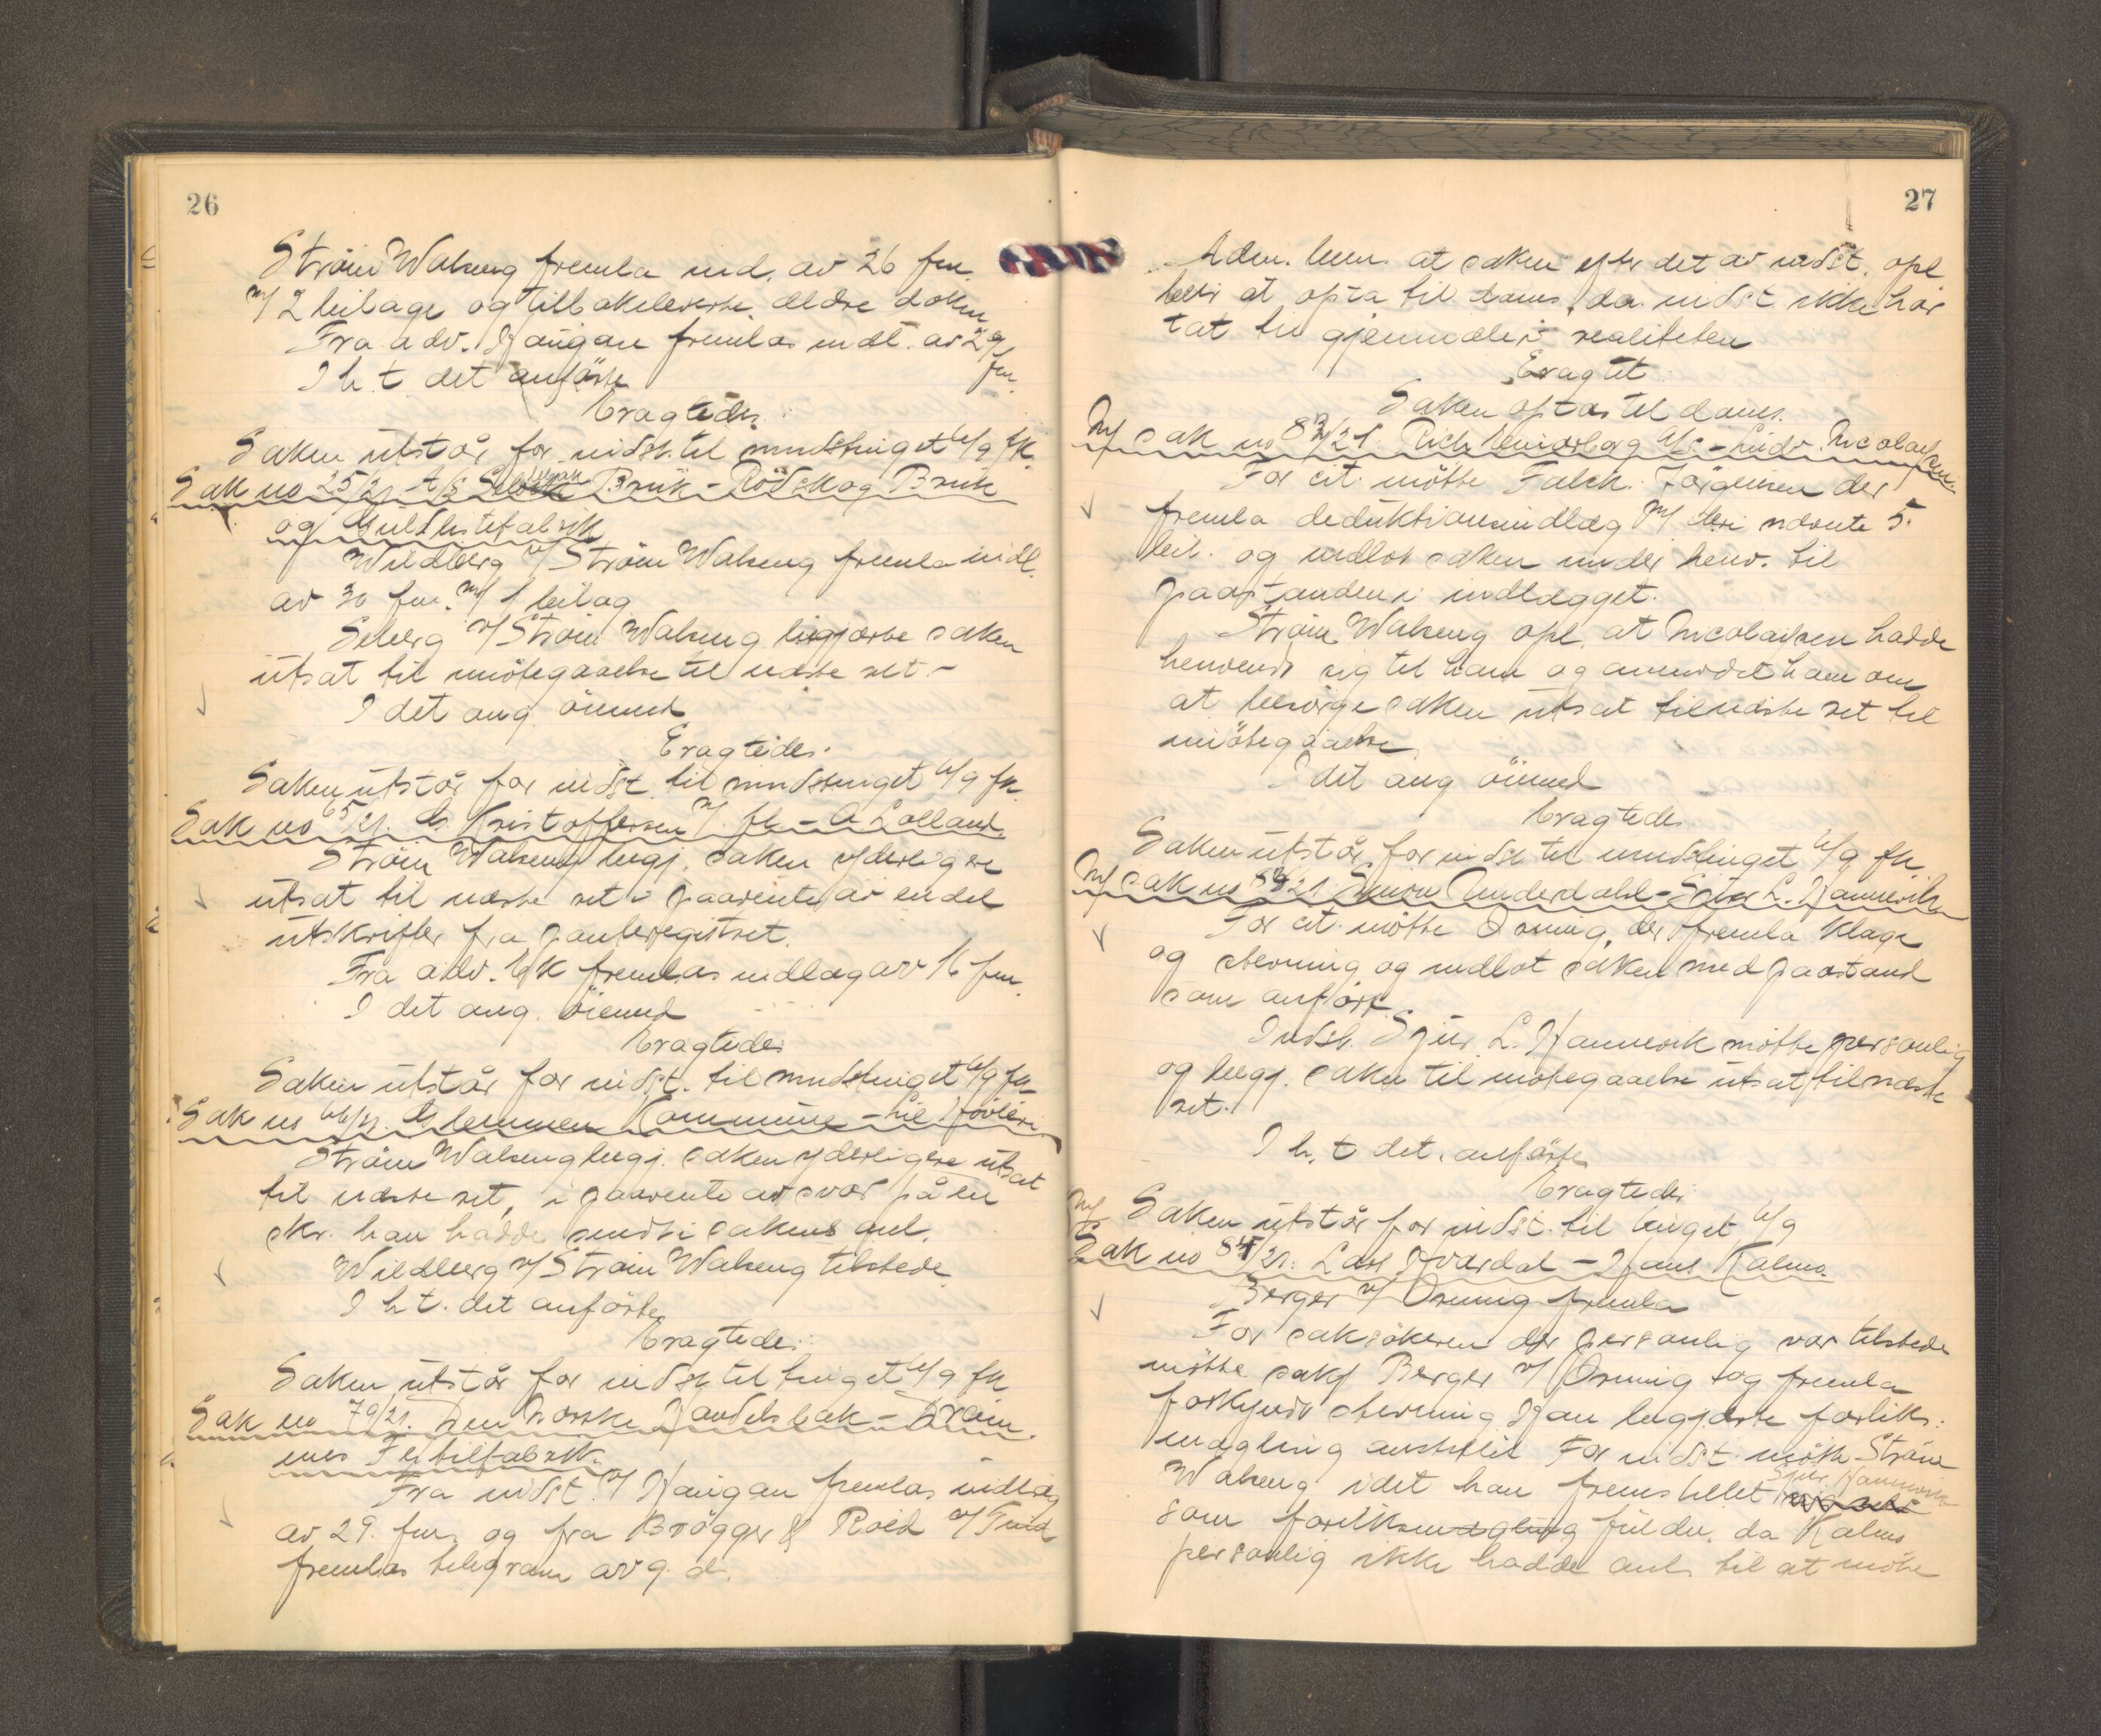 26
Ström Walseng fremla ind. av 26 fm.
m/ 2 beilage og tilbakeleverte ældre dokm
Fra adv. Haugan fremlas indl. av 29/
I h. t. det anförte fm.
Eragtedes:
Saken utstår for indst. til mndstinget 6/9 fk.
Sak no 25/21 A/S Bruk - Rödskog Bruk
og Guldlistefabrik
Wildberg v/ Ström Walseng fremla indl.
av 30 fm. m/ 1 beilag
Seberg v/ Ström Walseng begjærte saken
utsat til mötegaaelse til næste ret.-
I det ang. öiemed
Eragtedes.
Saken utstår for indst. til mndstinget 6/9 fk.
Sak no 65/21. Kristoffersen m/ fl - A Lolland.
Ström Walseng begj. saken yderligere
utsat til næste ret i paavente av endel
utskrifter fra panteregistret.
Fra adv. fremlas indlæg av 16 fm.
I det ang. öiemed
Eragtedes
Saken utstår for indst. til mndstinget 6/9 fk.
Sak no 66/21. Glemmen Kommune - Lie Hövleri
Ström Walseng begj. saken yderligere utsat
til næste ret, i paavente av svar på en
skr. han hadde sendt i sakens anl.
Wildberg v/ Ström Walseng tilstede
I h. t. det anförte
Eragtedes:
Saken utstår for indst til tinget 6/9 fk
Sak no 79/21. Den Norske Handelsbak - Dram.
mes Textilfabrik.
Fra indst. v/ Haugan fremlas indlæg
av 29. fm. og fra Brögger & Roed v/
fremlas telegram av g. d.
27
Adm. bem. at saken efter det av indst. opl
blir at opta til doms, da indst ikke har
tat til gjenmæle i realiteten
Eragtet
Saken optas til doms.
M/ Sak no 83/21. A/S - Ludv. Nicolaysen.
For cit. mötte Falck. Jörgensen der
fremla deduktionsindlæg m/ deri nævnte 5.
beil. og indlot saken under henv. til
paastanden i indlægget.
Ström Walseng opl. at Nicolaisen hadde
henvendt sig til ham og anmodet ham om
at besörge saken utsat til næste ret til
mötegaaelse
I det ang öiemed
Eragtedes
Saken utstår for indst til mndstinget 6/9 fk
M/ Sak no 84/21 Simon Underdahl - Sjur L. Hannevik
For cit. mötte Orning, der fremla klage
og stevning og indlot saken med paastand
som anfört
Indst. Sjur L. Hannevik mötte personlig
og begj. saken til mötegaaelse utsat til næste
ret.
I h. t det. anförte
Eragtedes:
Saken utstår for indst. til tinget 6/9
M/ Sak no 85/21. Lars Hvardal - Hans Kalmo.
Berger v/ Orning fremla
For saksökeren der personlig var tilstede
mötte sakf Berger v/ Orning og fremla
forkyndt stevning. Han begjærte forliks.
mægling anstillet For indst. mötte Ström
Walseng idet han fremstillet Sjur Hannevik
som forliksmæglings fuldm. da Kalmo
personlig ikke hadde anl. til at möte